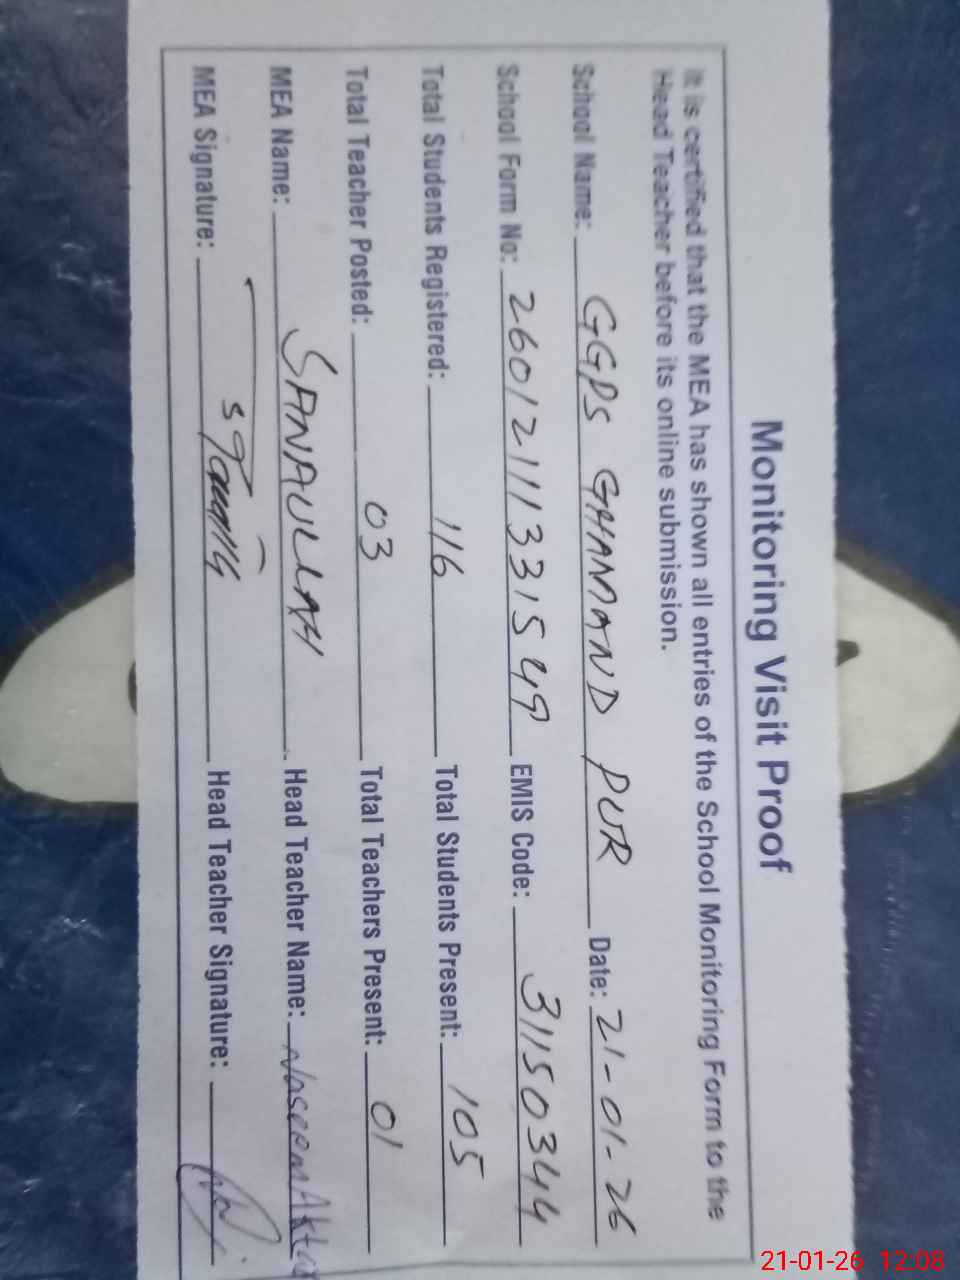 Monitoring Visit Proof
It is certified that the MEA has shown all entries of the School Monitoring Form to the
Head Teacher before its online submission.
School Name: GGPS GHAMAND PUR Date: 21-01-26
School Form No: 26012111331549 EMIS Code: 31150344
Total Students Registered: 116 Total Students Present: 105
Total Teacher Posted: 03 Total Teachers Present: 01
MEA Name: SANAULLAH Head Teacher Name: Naseem Akta
MEA Signature: Head Teacher Signature:
21-01-26 12:08